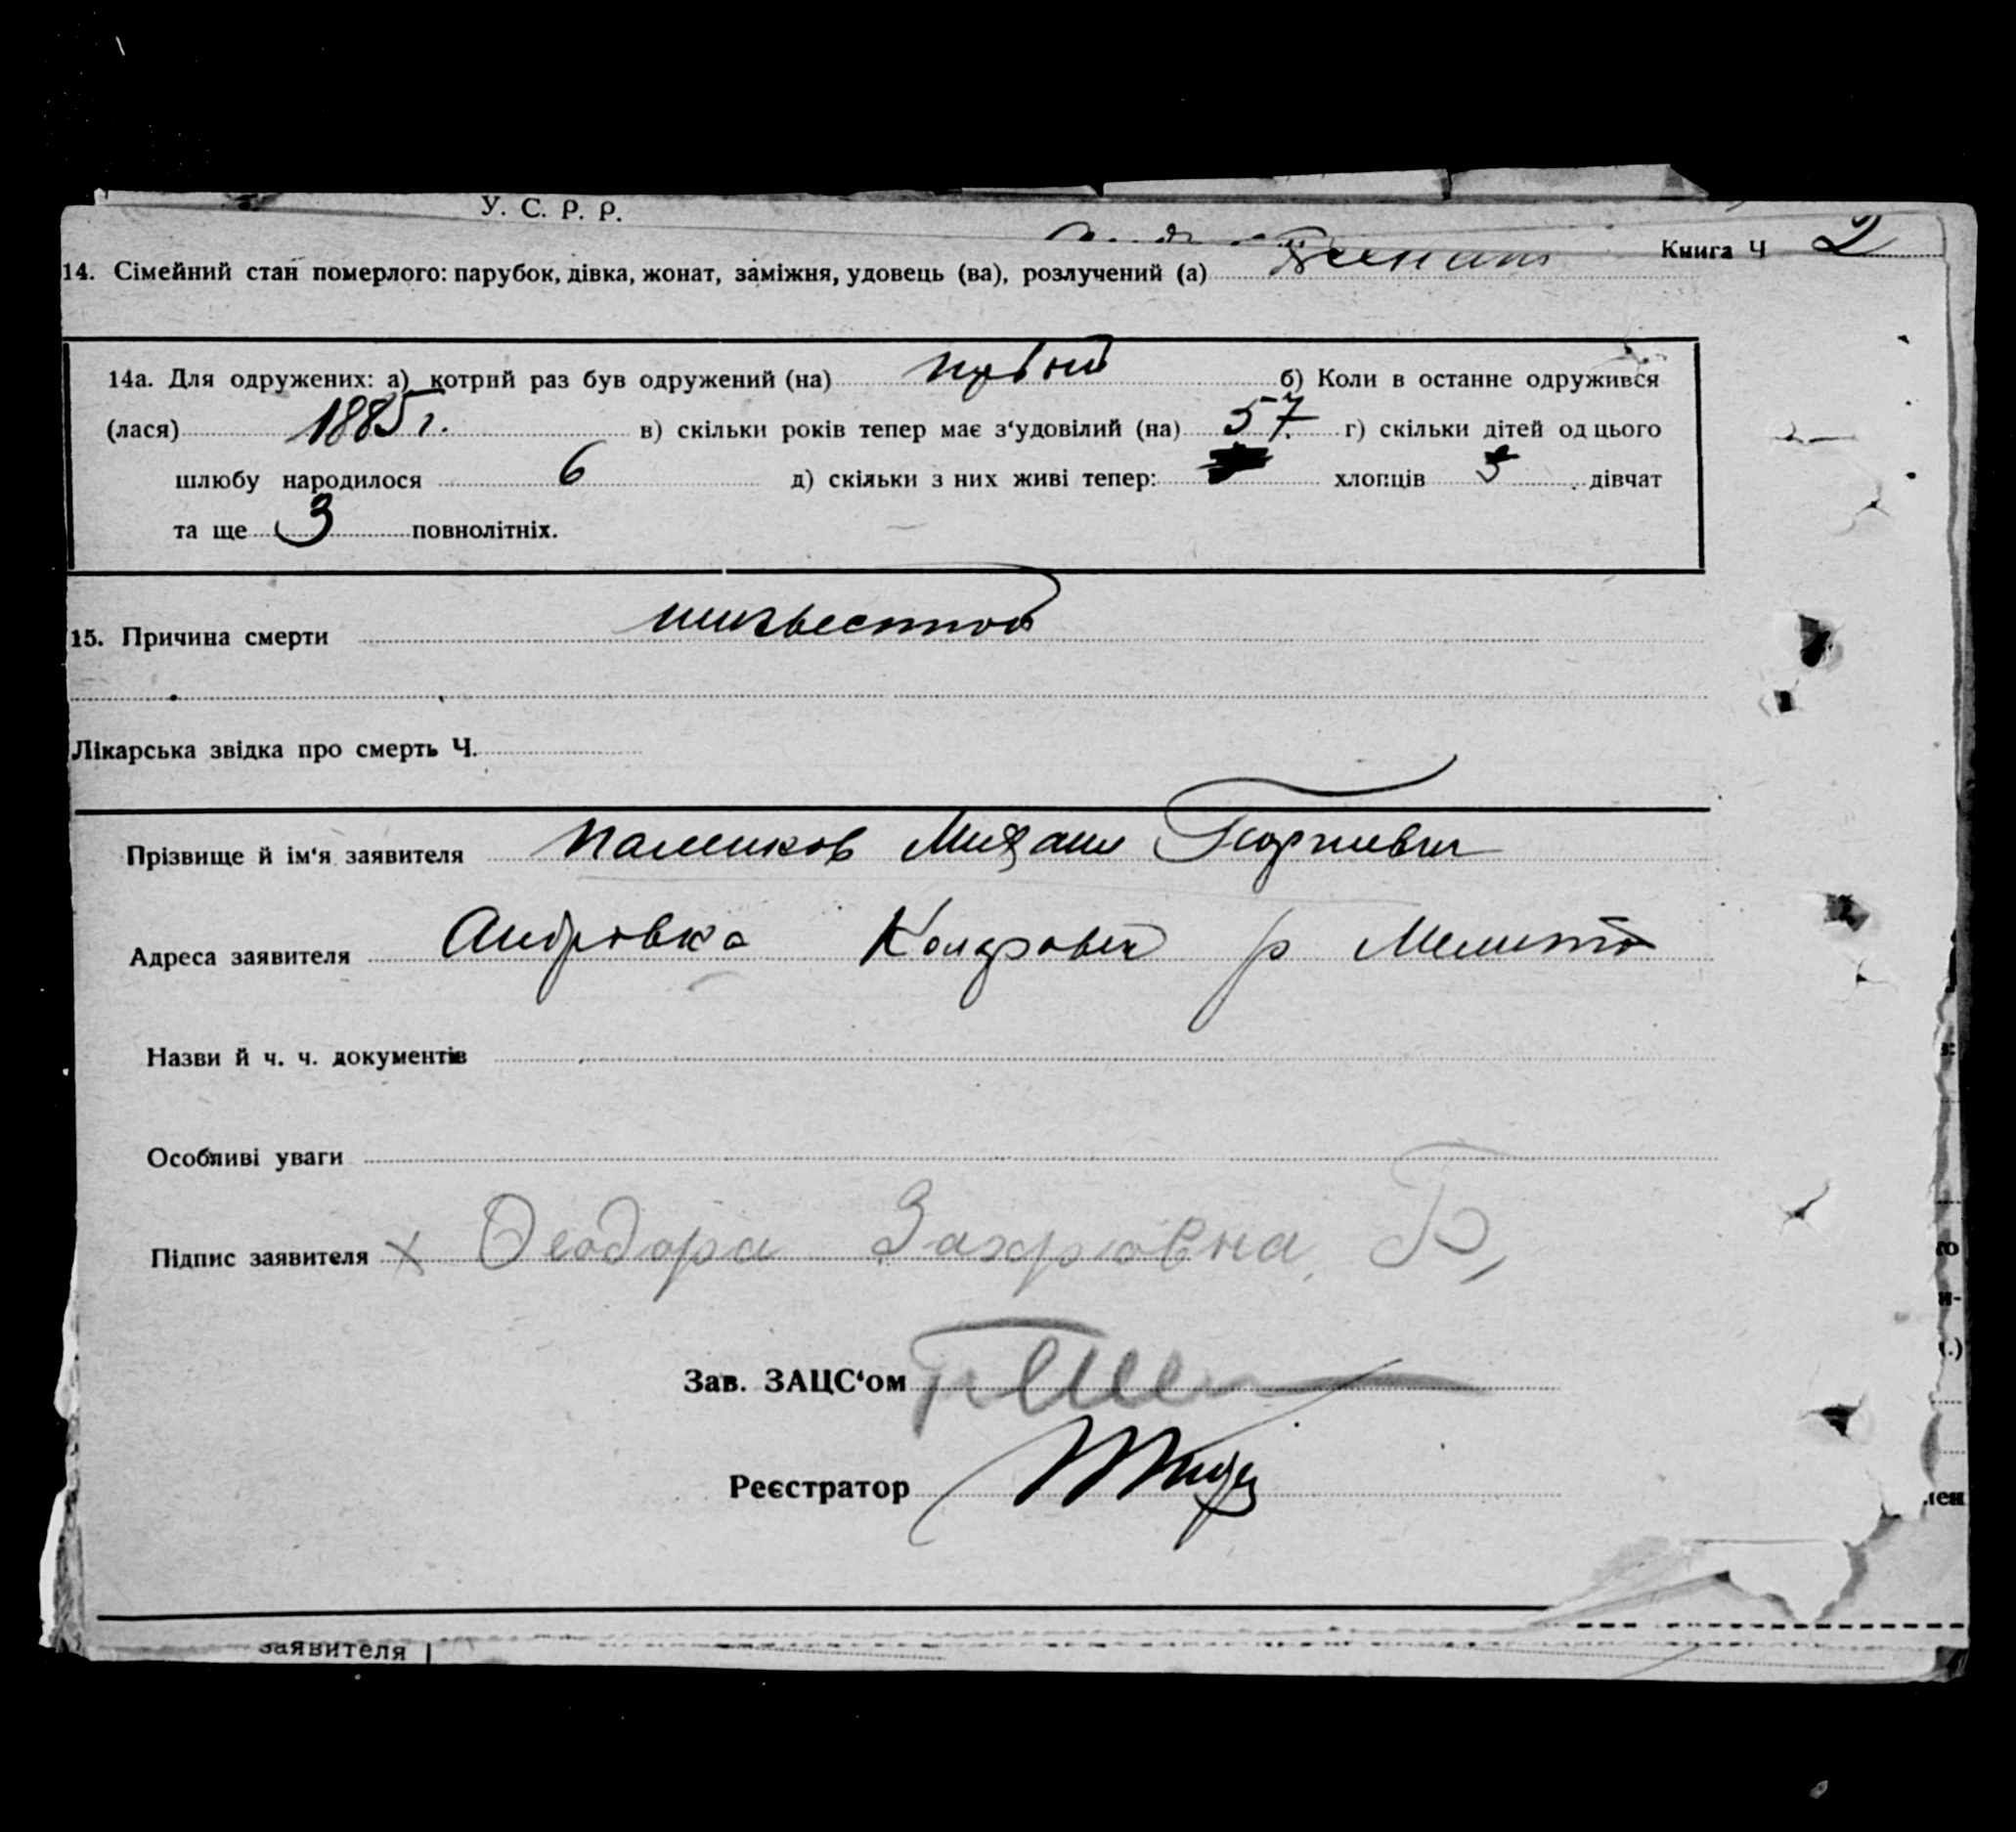 У. С. Р. Р.
Книга Ч 2
14. Сімейний стан померлого: парубок, дівка, жонат, заміжня, удовець (ва), розлучений (а) Женат
14а. Для одружених: а) котрий раз був одружений (на) первый б) Коли в останне одружився
(лася) 1885 г. в) скільки років тепер має з‘удовілий (на) 57 г) скільки дітей од цього
шлюбу народилося 6 д) скільки з них живі тепер: хлопців 3 дівчат
та ще 3 повнолітніх.
15. Причина смерти неизвестной
Лікарська звідка про смерть Ч.
Прізвище й ім‘я заявителя Михаил Георгиевич
Адреса заявителя Андровка р Мелито
Назви й ч. ч. документів
Особливі уваги
Підпис заявителя х Феодора Захровна,
Зав. ЗАЦС‘ом
Реєстратор
заявителя